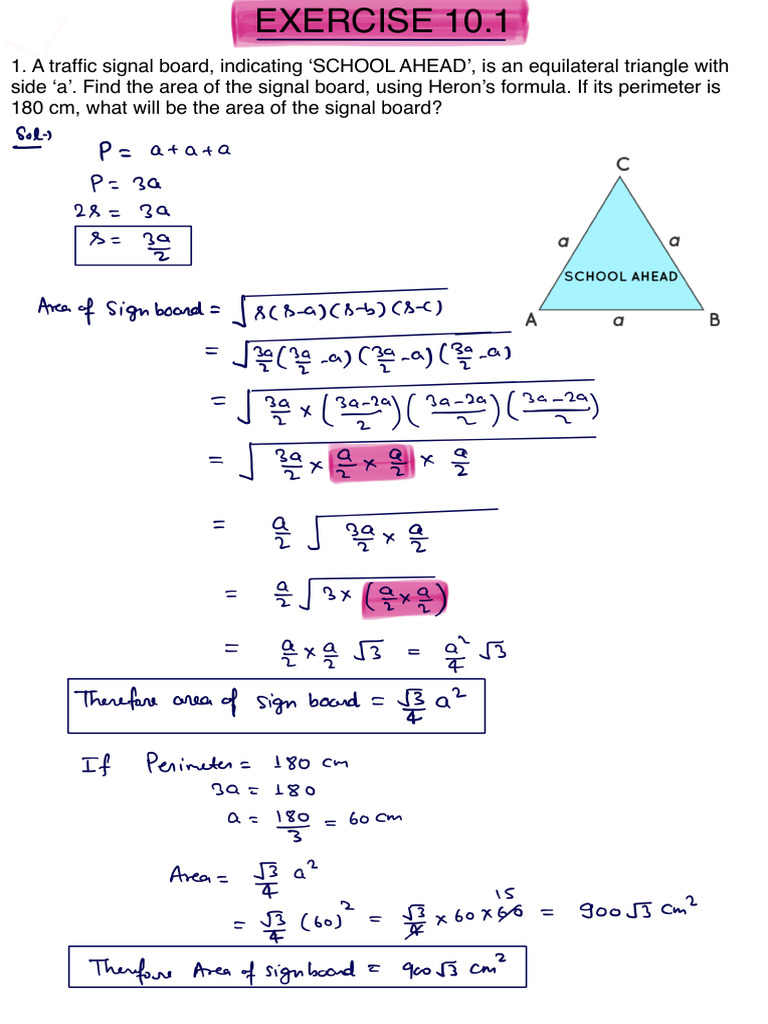 EXERCISE 10.1
1. A traffic signal board, indicating ‘SCHOOL AHEAD’, is an equilateral triangle with
side ‘a’. Find the area of the signal board, using Heron’s formula. If its perimeter is
180 cm, what will be the area of the signal board?
Sol→
P = a + a + a
P = 3a
2s = 3a
s = 3a/2
C
a
a
SCHOOL AHEAD
A
a
B
Area of Sign board = √s(s-a)(s-b)(s-c)
= √3a/2 (3a/2 - a) (3a/2 - a) (3a/2 - a)
= √3a/2 × (3a-2a/2) (3a-2a/2) (3a-2a/2)
= √3a/2 × a/2 × a/2 × a/2
= a/2 √3a/2 × a/2
= a/2 √3 × (a/2 × a/2)
= a/2 × a/2 √3 = a²/4 √3
Therefore area of sign board = √3/4 a²
If Perimeter = 180 cm
3a = 180
a = 180/3 = 60 cm
Area = √3/4 a²
= √3/4 (60)² = √3/4 × 60 × 60 15 = 900√3 cm²
Therefore Area of sign board = 900√3 cm²